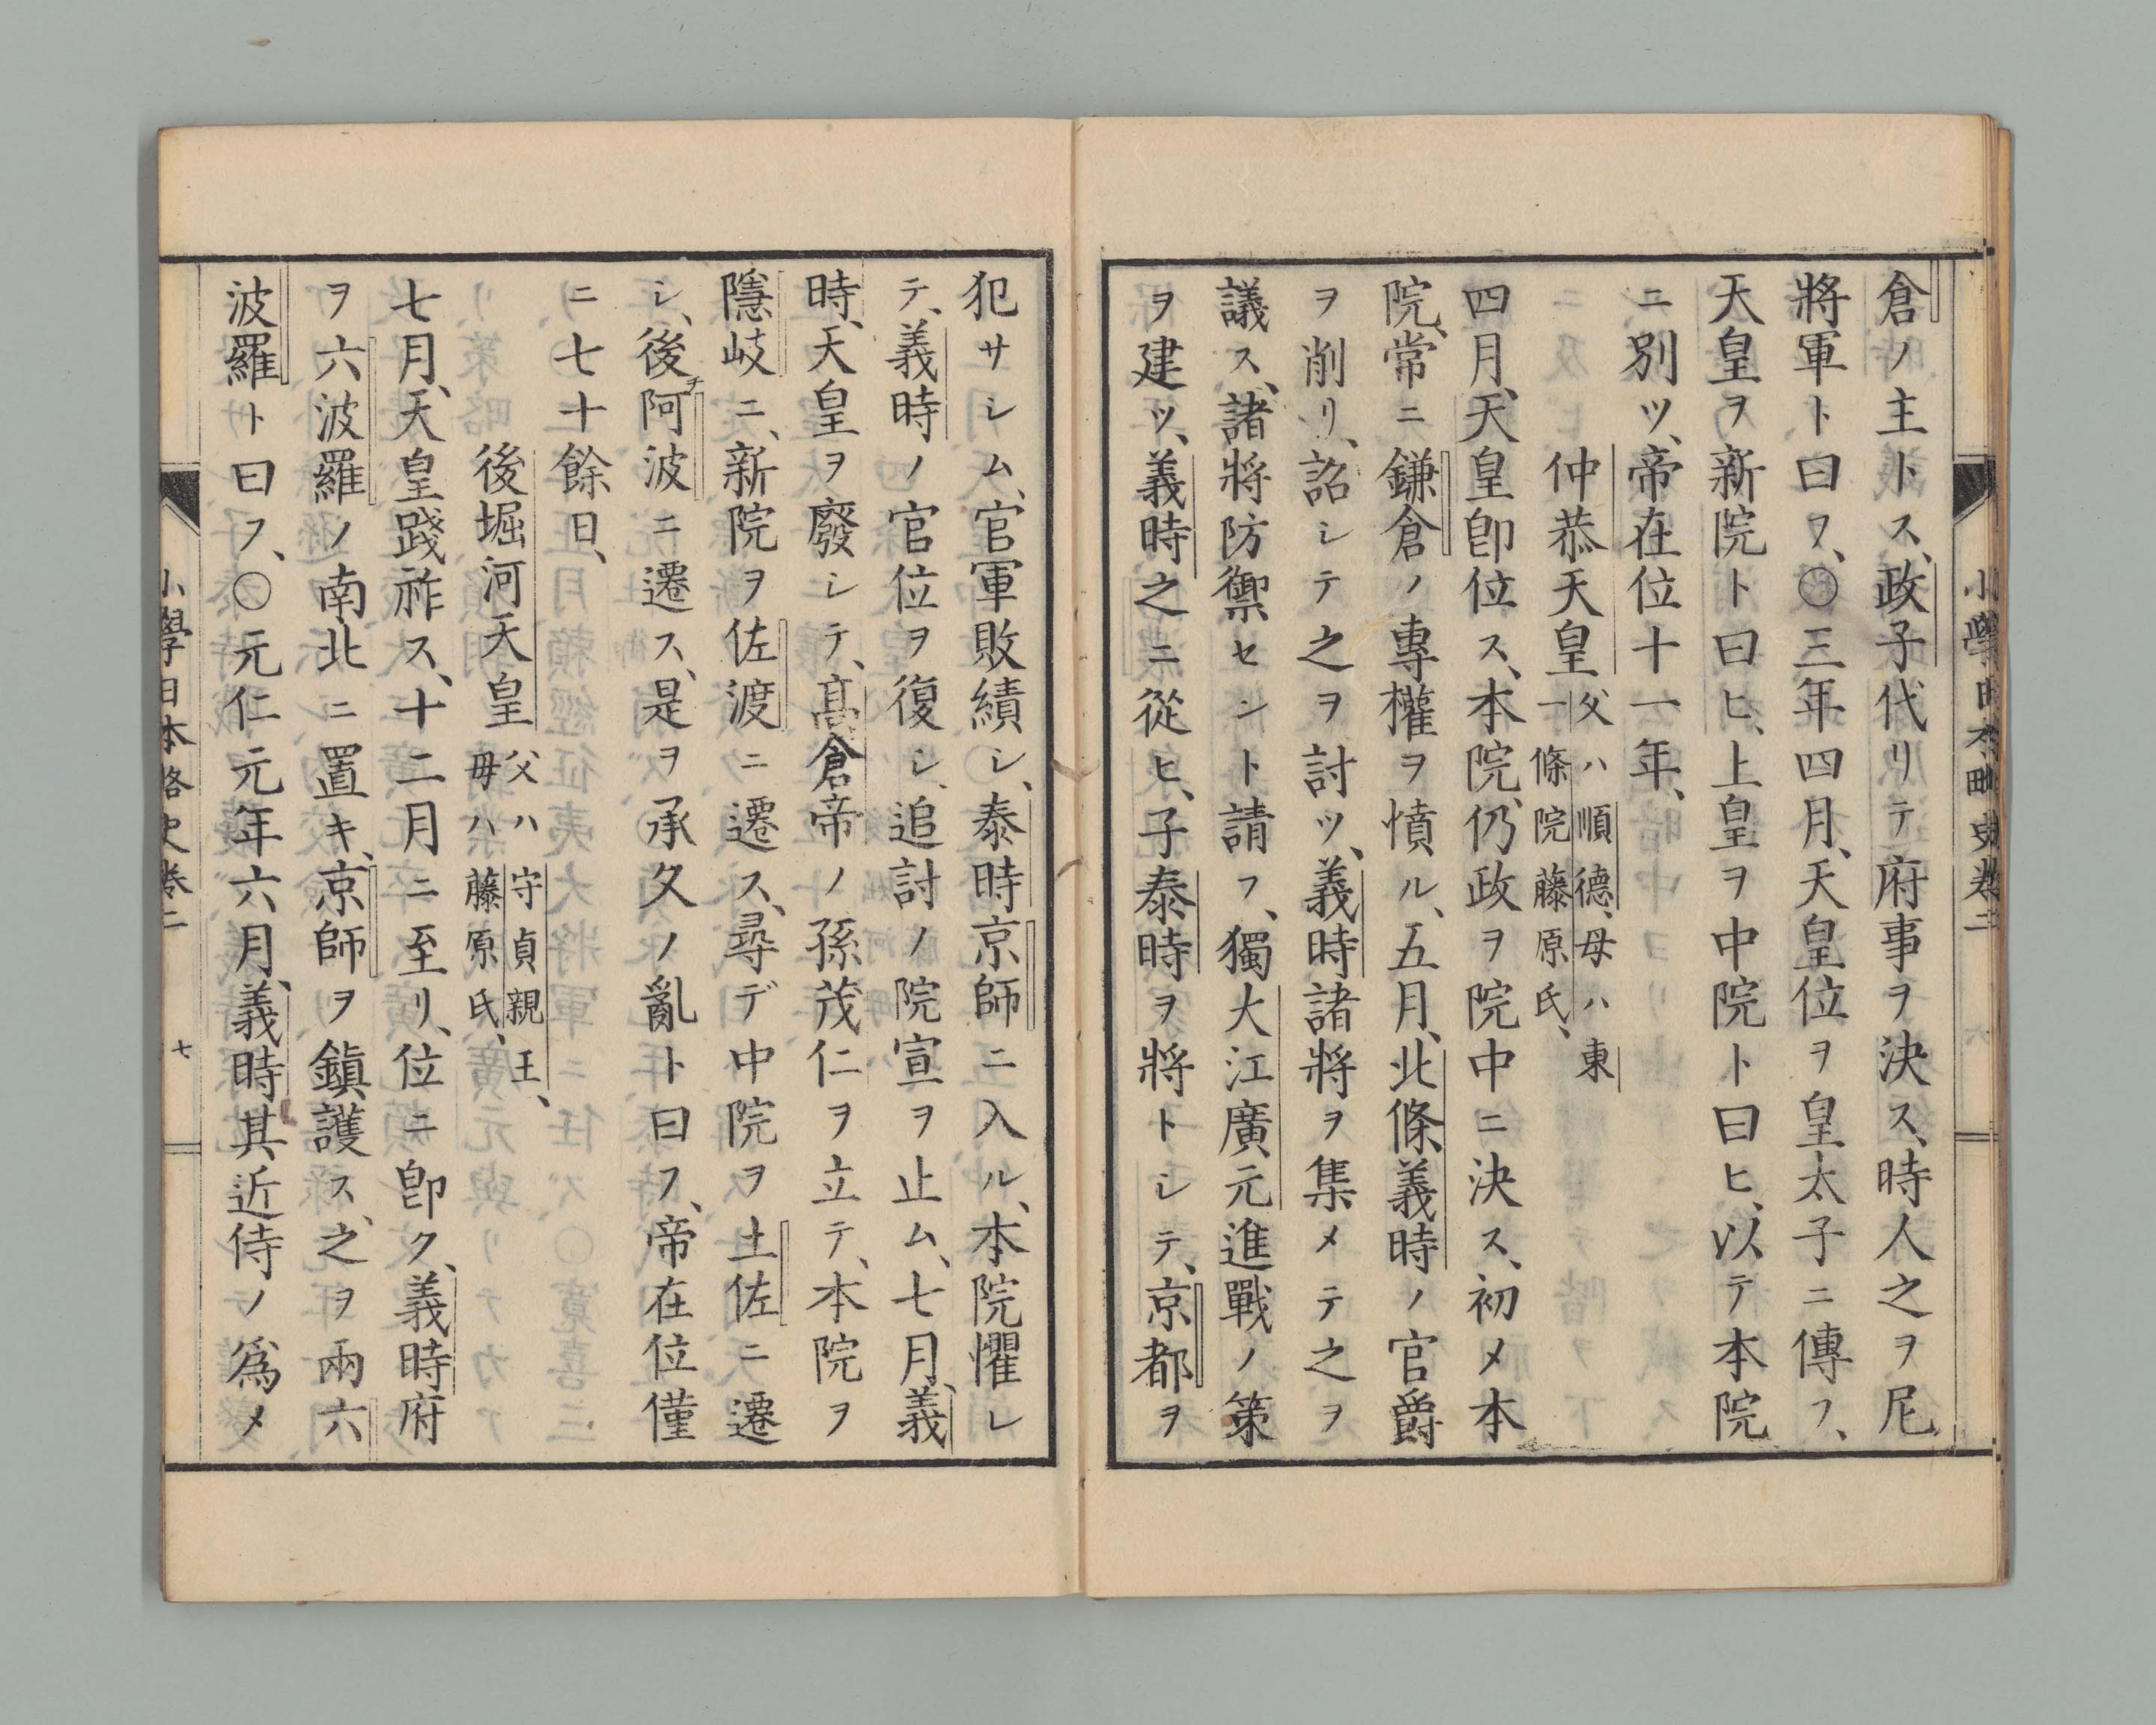 小學日本略史卷二
倉ノ主トス、政子代リテ府事ヲ決ス、時人之ヲ尼
將軍ト曰フ、〇三年四月、天皇位ヲ皇太子ニ傳フ、
天皇ヲ新院ト曰ヒ、上皇ヲ中院ト曰ヒ、以テ本院
ニ別ツ、帝在位十一年、
仲恭天皇
父ハ順德、母ハ東
一條院藤原氏、
四月、天皇卽位ス、本院仍政ヲ院中ニ決ス、初メ本
院、常ニ鎌倉ノ專權ヲ憤ル、五月、北條義時ノ官爵
ヲ削リ、詔シテ之ヲ討ツ、義時諸將ヲ集メテ之ヲ
議ス、諸將防禦センント請フ、獨大江廣元進戰ノ策
ヲ建ツ、義時之ニ從ヒ、子泰時ヲ將トシテ、京都ヲ
犯サシム、官軍敗績シ、泰時京師ニ入ル、本院懼レ
テ、義時ノ官位ヲ復シ、追討ノ院宣ヲ止ム、七月、義
時、天皇ヲ廢シテ、高倉帝ノ孫茂仁ヲ立テ、本院ヲ
隱岐ニ、新院ヲ佐渡ニ遷ス、尋デ中院ヲ土佐ニ遷
シ、後チ阿波ニ遷ス、是ヲ承久ノ亂ト曰フ、帝在位僅
ニ七十餘日、
後堀河天皇
父ハ守貞親王、
母ハ藤原氏、
七月、天皇踐祚ス、十二月ニ至リ、位ニ卽ク、義時府
ヲ六波羅ノ南北ニ置キ、京師ヲ鎭護ス、之ヲ兩六
波羅ト曰フ、〇元仁元年六月、義時其近侍ノ爲メ
小學日本略史卷二
七